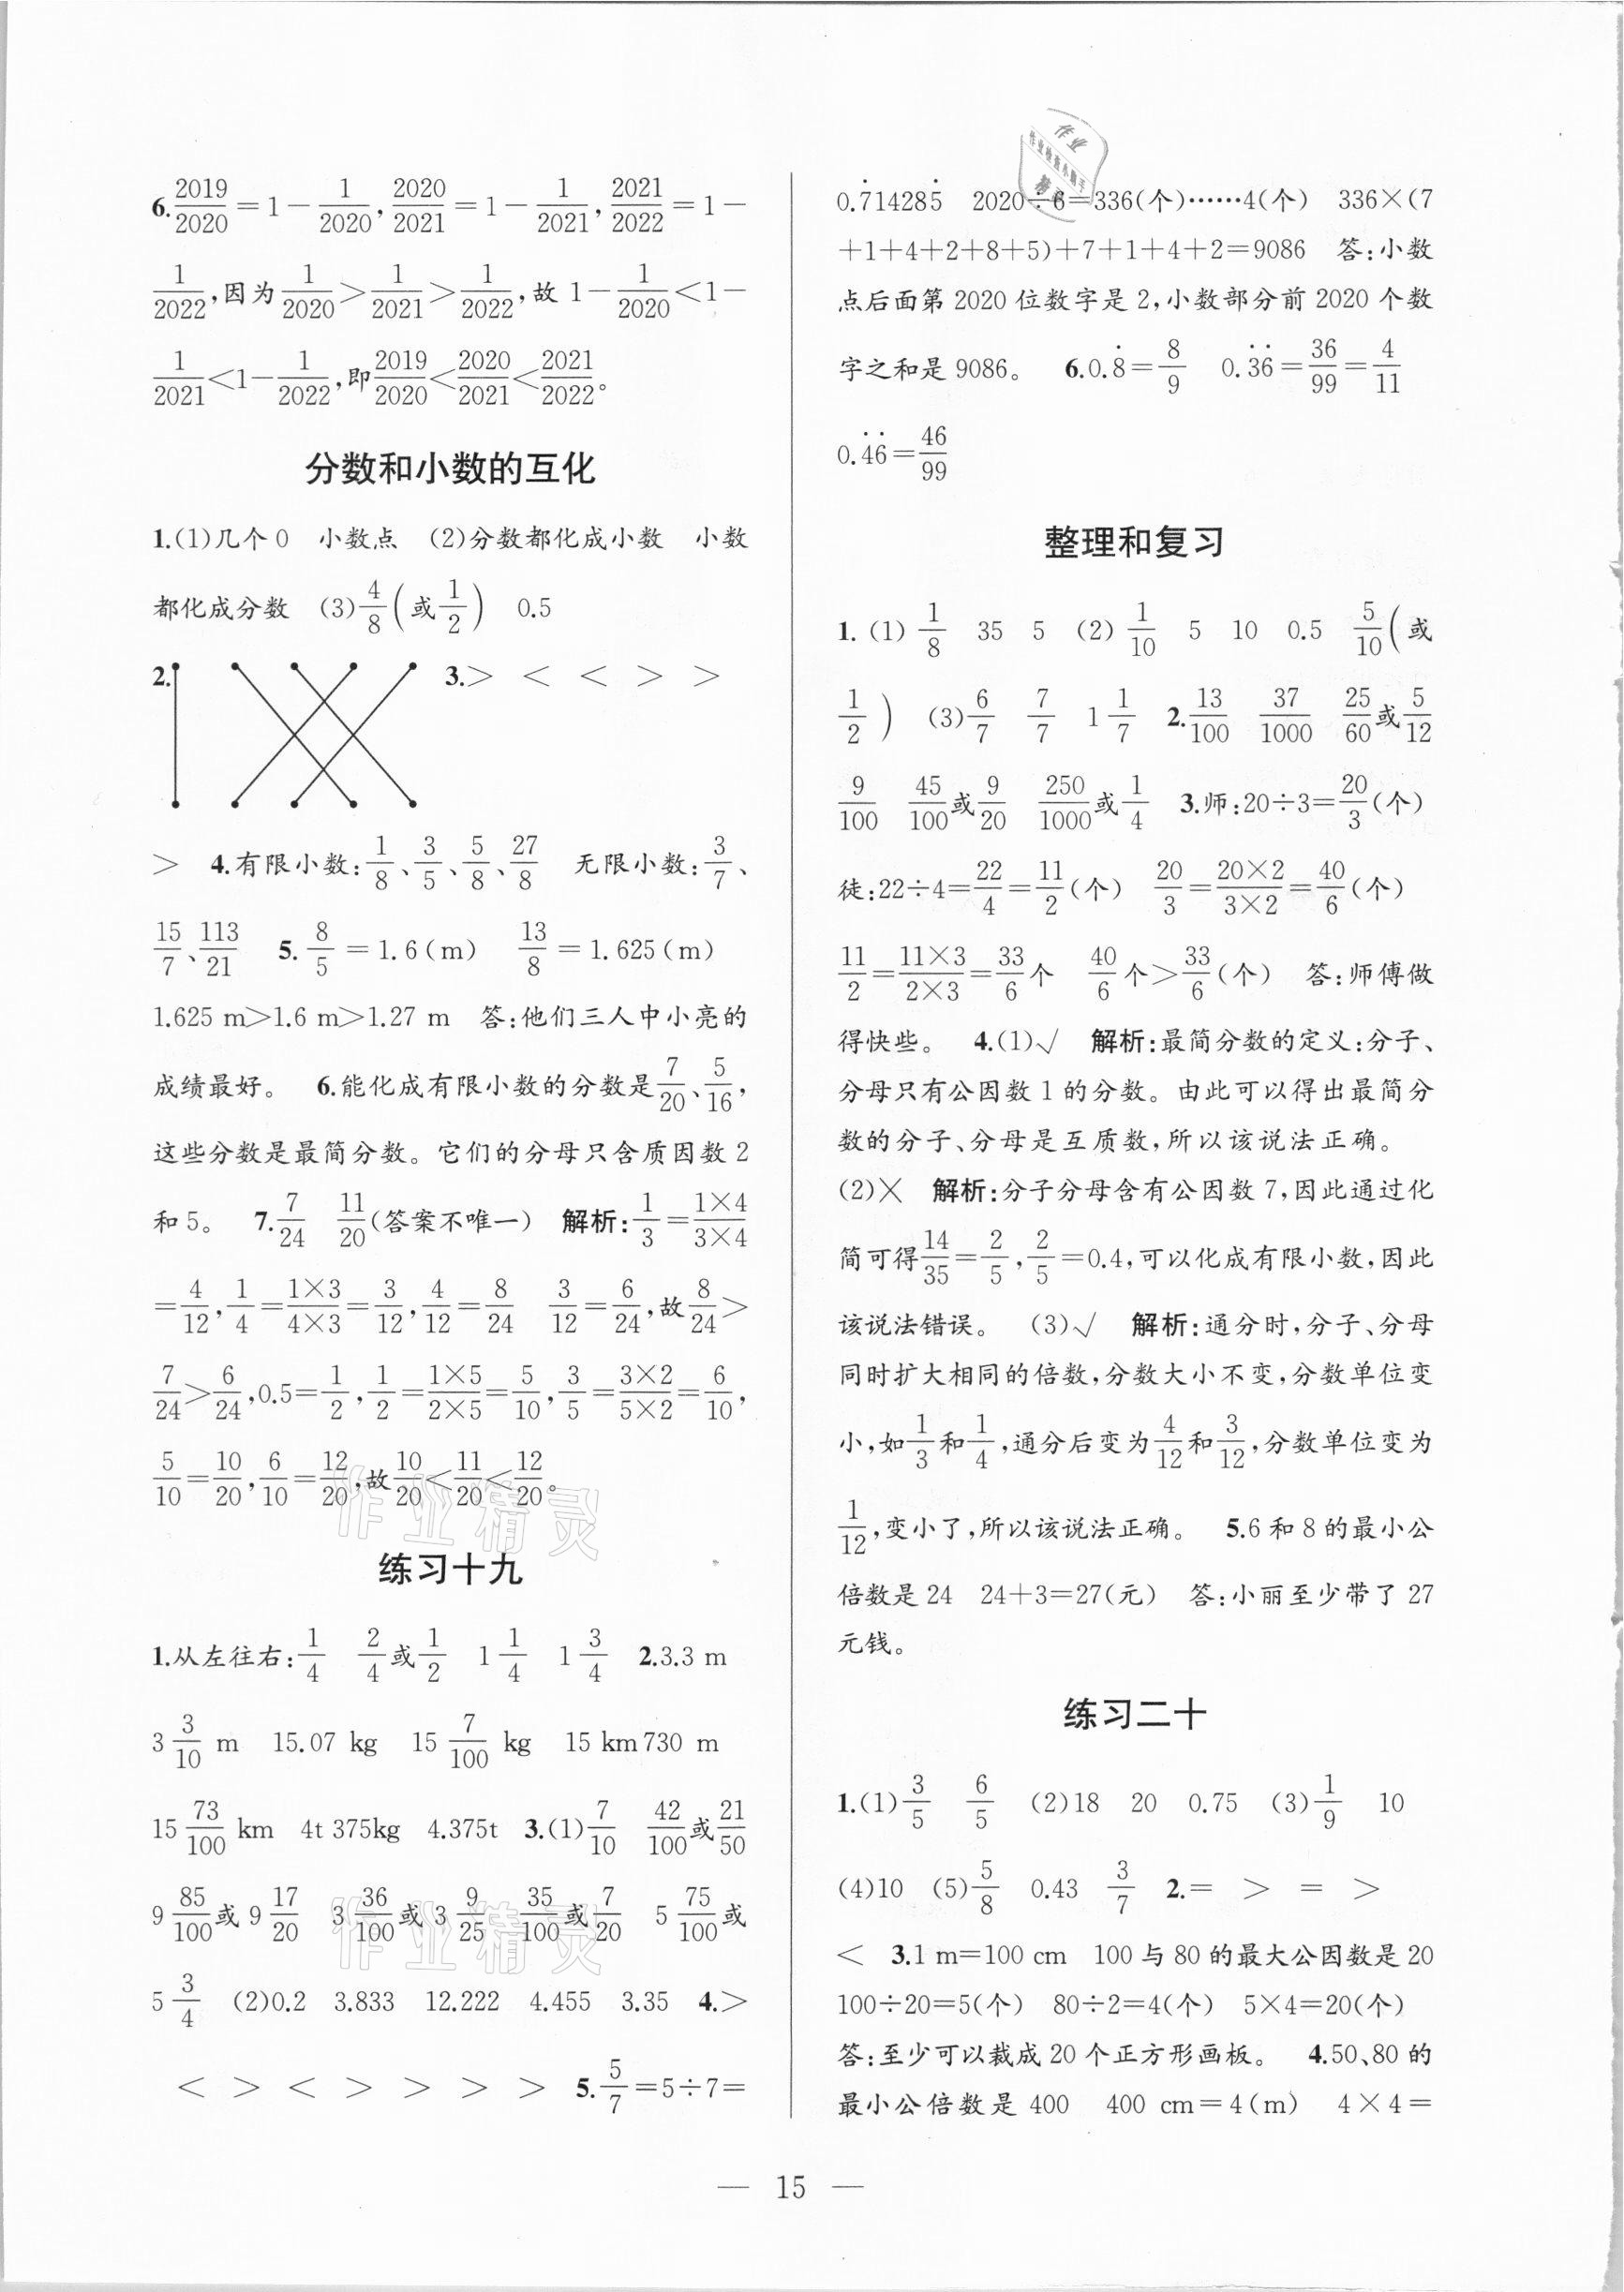 6.2019/2020=1-1/2020,2020/2021=1-1/2021,2021/2022=1-
1/2022,因为1/2020>1/2021>1/2022,故1-1/2020<1-
1/2021<1-1/2022,即2019/2020<2020/2021<2021/2022。
分数和小数的互化
1.(1)几个0 小数点 (2)分数都化成小数 小数
都化成分数 (3)4/8(或1/2) 0.5
2. 3.> < < > >
> 4.有限小数:1/8、3/5、5/8、27/8 无限小数:3/7、
15/7、113/21 5. 8/5=1.6(m) 13/8=1.625(m)
1.625 m>1.6 m>1.27 m 答:他们三人中小亮的
成绩最好。 6.能化成有限小数的分数是7/20、5/16,
这些分数是最简分数。它们的分母只含质因数2
和5。 7.7/24 11/20(答案不唯一) 解析:1/3=1×4/3×4
=4/12,1/4=1×3/4×3=3/12,4/12=8/24 3/12=6/24,故8/24>
7/24>6/24,0.5=1/2,1/2=1×5/2×5=5/10,3/5=3×2/5×2=6/10,
5/10=10/20,6/10=12/20,故10/20<11/20<12/20。
练习十九
1.从左往右:1/4 2/4或1/2 1 1/4 1 3/4 2.3.3 m
3 3/10 m 15.07 kg 15 7/100 kg 15 km730 m
15 73/100 km 4t 375kg 4.375t 3.(1)7/10 42/100或21/50
9 85/100或9 17/20 3 36/100或3 9/25 35/100或7/20 5 75/100或
5 3/4 (2)0.2 3.833 12.222 4.455 3.35 4.>
< > < > > > > 5.5/7=5÷7=
0.7̇14285̇ 2020÷6=336(个)……4(个) 336×(7
+1+4+2+8+5)+7+1+4+2=9086 答:小数
点后面第2020位数字是2,小数部分前2020个数
字之和是9086。 6.0.8̇=8/9 0.3̇6̇=36/99=4/11
0.4̇6̇=46/99
整理和复习
1.(1)1/8 35 5 (2)1/10 5 10 0.5 5/10(或
1/2) (3)6/7 7/7 1 1/7 2.13/100 37/1000 25/60或5/12
9/100 45/100或9/20 250/1000或1/4 3.师:20÷3=20/3(个)
徒:22÷4=22/4=11/2(个) 20/3=20×2/3×2=40/6(个)
11/2=11×3/2×3=33/6个 40/6个>33/6(个) 答:师傅做
得快些。 4.(1)√ 解析:最简分数的定义:分子、
分母只有公因数1的分数。由此可以得出最简分
数的分子、分母是互质数,所以该说法正确。
(2)× 解析:分子分母含有公因数7,因此通过化
简可得14/35=2/5,2/5=0.4,可以化成有限小数,因此
该说法错误。 (3)√ 解析:通分时,分子、分母
同时扩大相同的倍数,分数大小不变,分数单位变
小,如1/3和1/4,通分后变为4/12和3/12,分数单位变为
1/12,变小了,所以该说法正确。 5.6和8的最小公
倍数是24 24+3=27(元) 答:小丽至少带了27
元钱。
练习二十
1.(1)3/5 6/5 (2)18 20 0.75 (3)1/9 10
(4)10 (5)5/8 0.43 3/7 2.= > = >
< 3.1 m=100 cm 100与80的最大公因数是20
100÷20=5(个) 80÷2=4(个) 5×4=20(个)
答:至少可以裁成20个正方形画板。 4.50、80的
最小公倍数是400 400 cm=4(m) 4×4=
— 15 —
作业精灵
作业精灵